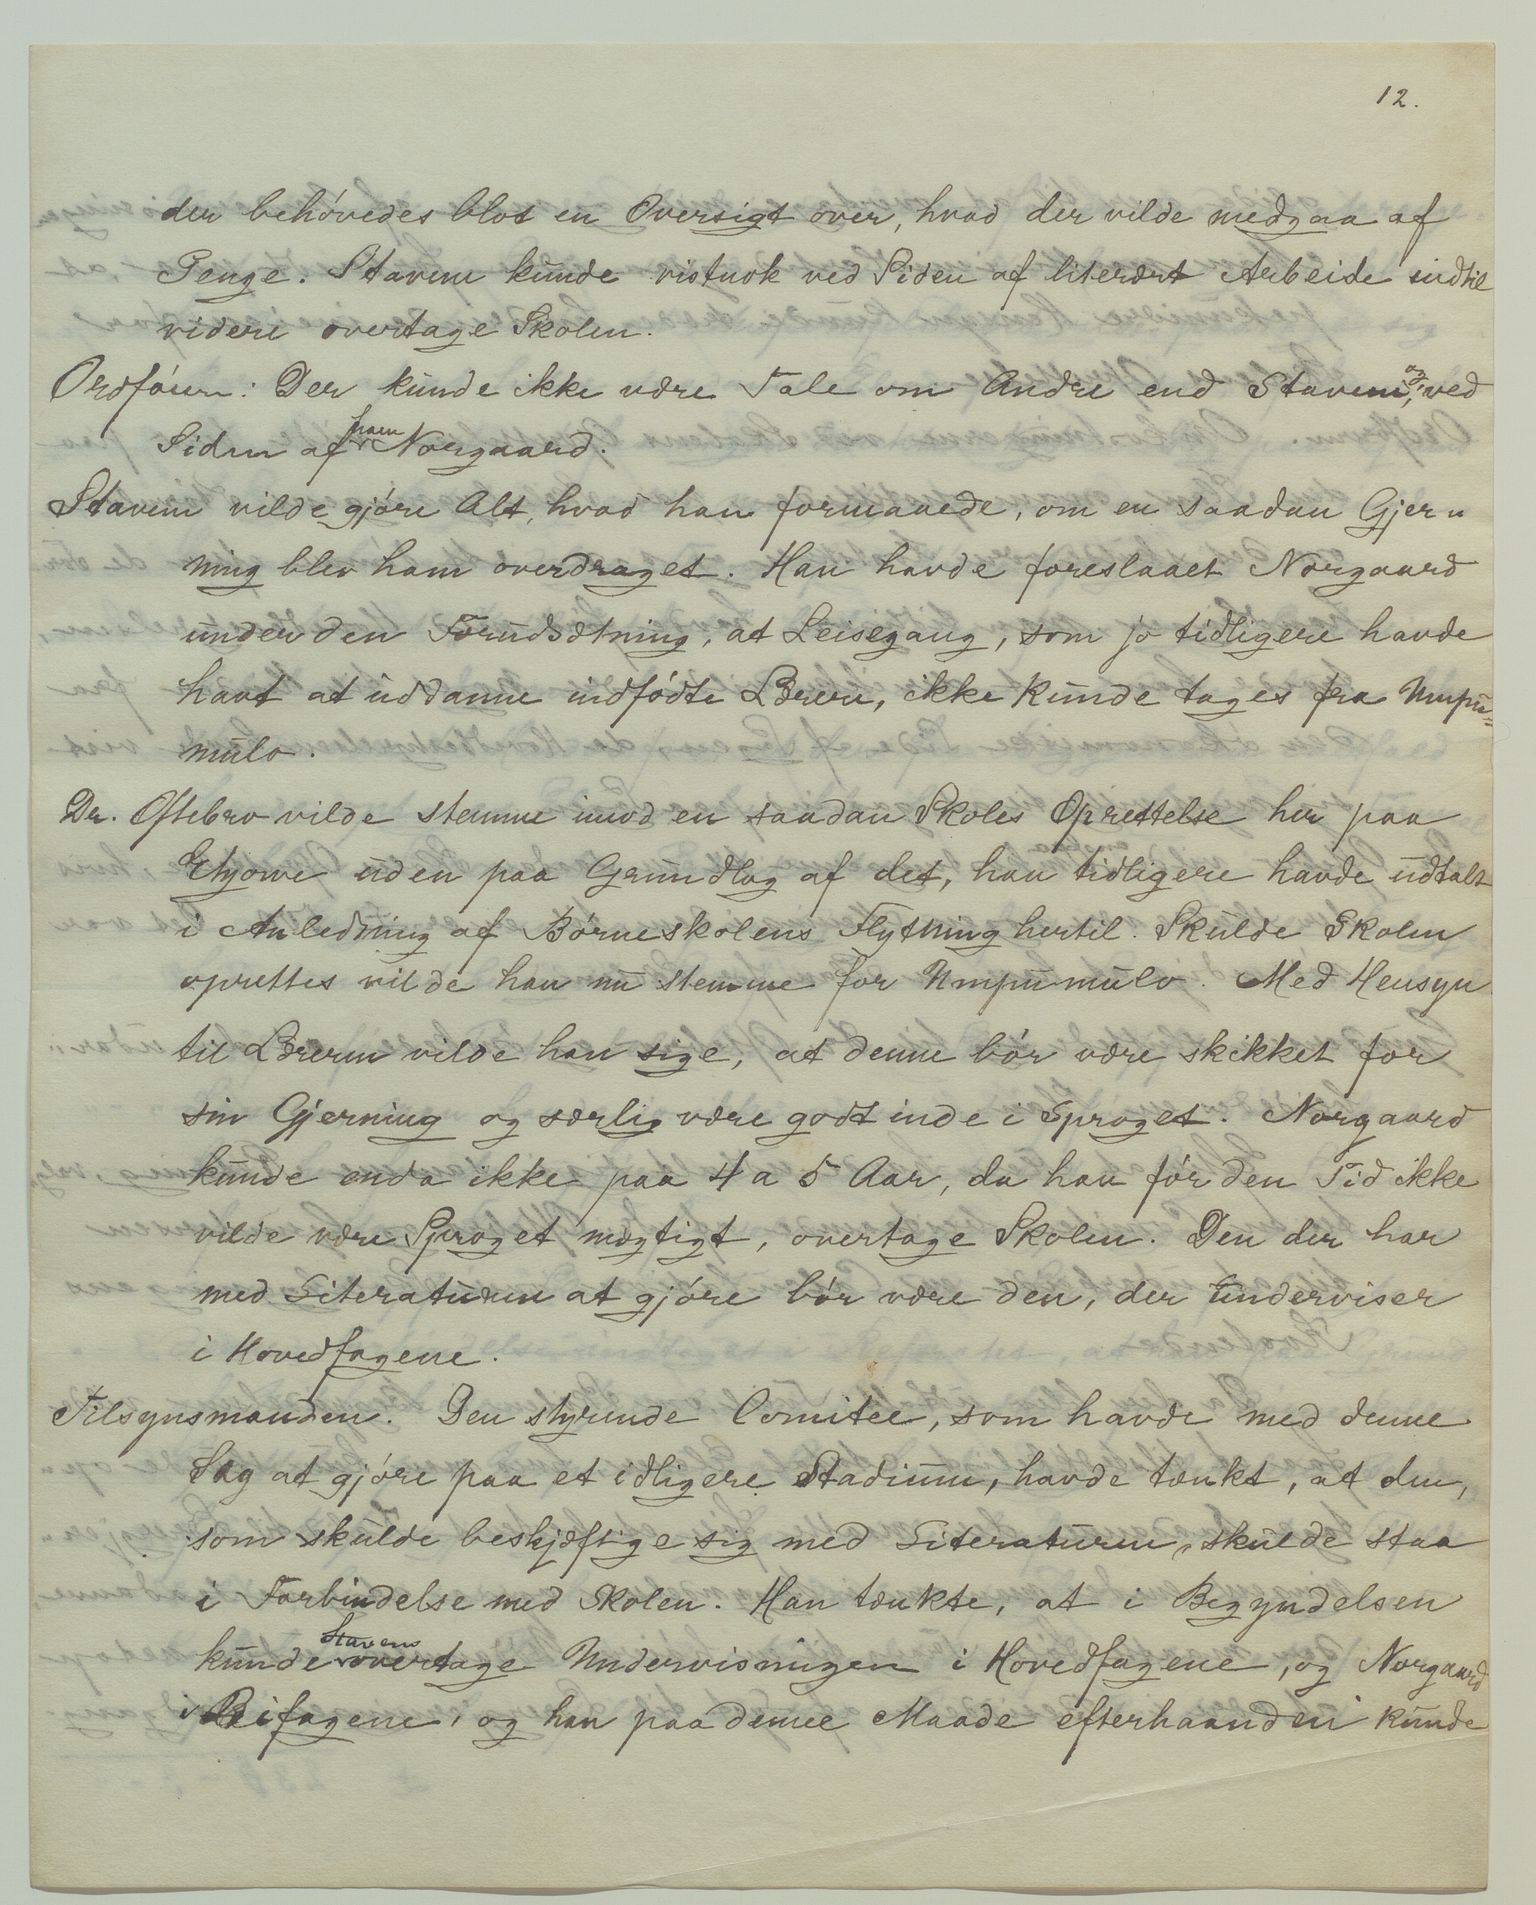 12.
der behóvedes blot en Oversigt over, hvad der vilde medgaa af
Penge. Stavem kunde vistnok ved Siden af literært Arbeide indtil
videre overtage Skolen.
Ordfóren: Der kunde ikke være Tale om Andre end Stavem, og ved
Siden af ham Norgaard.
Stavem vilde gjóre Alt, hvad han formaaede, om en saadan Gjer-
ning blev ham overdraget. Han havde foreslaaet Norgaard
under den Forudsætning, at Leisegang, som jo tidligere havde
havt at uddanne indfódte Lærere, ikke kunde tages fra Umpu-
mulo.
Dr. Oftebro vilde stemme imod en saadan Skoles Oprettelse her paa
Ehjowe uden paa Grundlag af det, han tidligere havde udtalt
i Anledning af Bórneskolens Flytning hertil. Skulde Skolen
oprettes vilde han nu stemme for Umpumulo. Med Hensyn
til Læreren vilde han sige, at denne bór være skikket for
sin Gjerning og særlig være godt inde i Sproget. Norgaard
kunde enda ikke paa 4 a 5 Aar, da han fór den Tid ikke
vilde være Sproget mægtigt, overtage Skolen. Den der har
med Literaturen at gjóre bór være den, der underviser
i Hovedfagene.
Tilsynsmanden. Den styrende Comitee, som havde med denne
Sag at gjóre paa et idligere Stadium, havde tænkt, at den,
som skulde beskjæftige sig med Literaturen, skulde staa
i Forbindelse med Skolen. Han tænkte, at i Begyndelsen
kunde Stavem overtage Undervisningen i Hovedfagene, og Norgaard
i Bifagene, og han paa denne Maade efterhaanden kunde